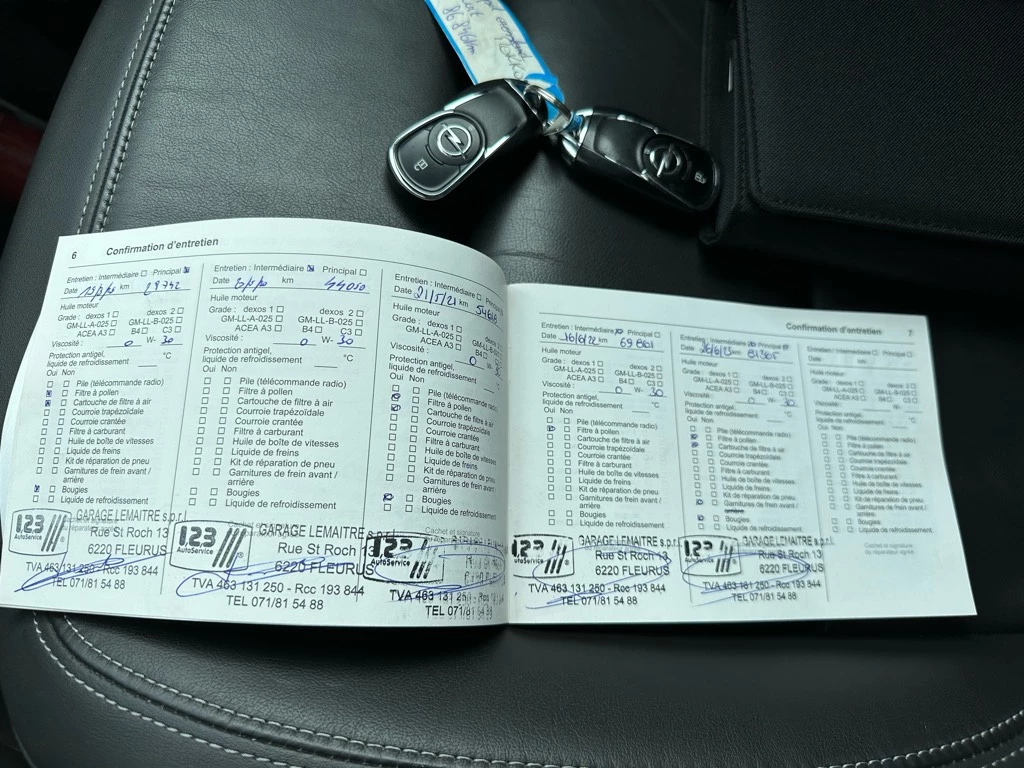 86 846km
6 Confirmation d'entretien
Entretien : Intermédiaire Principal
Date km 29742
Huile moteur
Grade : dexos 1 dexos 2
GM-LL-A-025 GM-LL-B-025
ACEA A3 B4 C3
Viscosité : 0 W- 30
Protection antigel, °C
liquide de refroidissement
Oui Non
Pile (télécommande radio)
Filtre à pollen
Cartouche de filtre à air
Courroie trapézoïdale
Courroie crantée
Filtre à carburant
Huile de boîte de vitesses
Liquide de freins
Kit de réparation de pneu
Garnitures de frein avant /
arrière
Bougies
Liquide de refroidissement
123
AutoService
GARAGE LEMAITRE s.p.r.l
Rue St Roch 13
6220 FLEURUS
TVA 463 131 250 - Rcc 193 844
TEL 071/81 54 88
Entretien : Intermédiaire Principal
Date km 44050
Huile moteur
Grade : dexos 1 dexos 2
GM-LL-A-025 GM-LL-B-025
ACEA A3 B4 C3
Viscosité : 0 W- 30
Protection antigel, °C
liquide de refroidissement
Oui Non
Pile (télécommande radio)
Filtre à pollen
Cartouche de filtre à air
Courroie trapézoïdale
Courroie crantée
Filtre à carburant
Huile de boîte de vitesses
Liquide de freins
Kit de réparation de pneu
Garnitures de frein avant /
arrière
Bougies
Liquide de refroidissement
Cachet et
123
AutoService
GARAGE LEMAITRE s.p.r.l
Rue St Roch 13
6220 FLEURUS
TVA 463 131 250 - Rcc 193 844
TEL 071/81 54 88
Entretien : Intermédiaire Principal
Date 21/5/21 km
Huile moteur
Grade : dexos 1
GM-LL-A-025
ACEA A3
Viscosité : 0
Protection antigel,
liquide de refroidissement
Oui Non
Pile (télécommande radio)
Filtre à pollen
Cartouche de filtre à air
Courroie trapézoïdale
Courroie crantée
Filtre à carburant
Huile de boîte de vitesses
Liquide de freins
Kit de réparation de pneu
Garnitures de frein avant /
arrière
Bougies
Liquide de refroidissement
Cachet et signature
123
AutoService
TVA 463 131 250 - Rcc
TEL 071/81 54 88
Confirmation d'entretien 7
Entretien : Intermédiaire Principal
Date 16/6/22 km 69861
Huile moteur
Grade : dexos 1 dexos 2
GM-LL-A-025 GM-LL-B-025
ACEA A3 B4 C3
Viscosité : 0 W- 30
Protection antigel, °C
liquide de refroidissement
Oui Non
Pile (télécommande radio)
Filtre à pollen
Cartouche de filtre à air
Courroie trapézoïdale
Courroie crantée
Filtre à carburant
Huile de boîte de vitesses
Liquide de freins
Kit de réparation de pneu
Garnitures de frein avant /
arrière
Bougies
Liquide de refroidissement
123
AutoService
GARAGE LEMAITRE s.p.r.l
Rue St Roch 13
6220 FLEURUS
TVA 463 131 250 - Rcc 193 844
TEL 071/81 54 88
Entretien : Intermédiaire Principal
Date 26/6/23 km 81365
Huile moteur
Grade : dexos 1 dexos 2
GM-LL-A-025 GM-LL-B-025
ACEA A3 B4 C3
Viscosité : 0 W- 30
Protection antigel, °C
liquide de refroidissement
Oui Non
Pile (télécommande radio)
Filtre à pollen
Cartouche de filtre à air
Courroie trapézoïdale
Courroie crantée
Filtre à carburant
Huile de boîte de vitesses
Liquide de freins
Kit de réparation de pneu
Garnitures de frein avant /
arrière
Bougies
Liquide de refroidissement
123
AutoService
GARAGE LEMAITRE s.p.r.l
Rue St Roch 13
6220 FLEURUS
TVA 463 131 250 - Rcc 193 844
TEL 071/81 54 88
Entretien : Intermédiaire Principal
Date km
Huile moteur
Grade : dexos 1 dexos 2
GM-LL-A-025 GM-LL-B-025
ACEA A3 B4 C3
Viscosité : W-
Protection antigel, °C
liquide de refroidissement
Oui Non
Pile (télécommande radio)
Filtre à pollen
Cartouche de filtre à air
Courroie trapézoïdale
Courroie crantée
Filtre à carburant
Huile de boîte de vitesses
Liquide de freins
Kit de réparation de pneu
Garnitures de frein avant /
arrière
Bougies
Liquide de refroidissement
Cachet et signature
du réparateur agréé